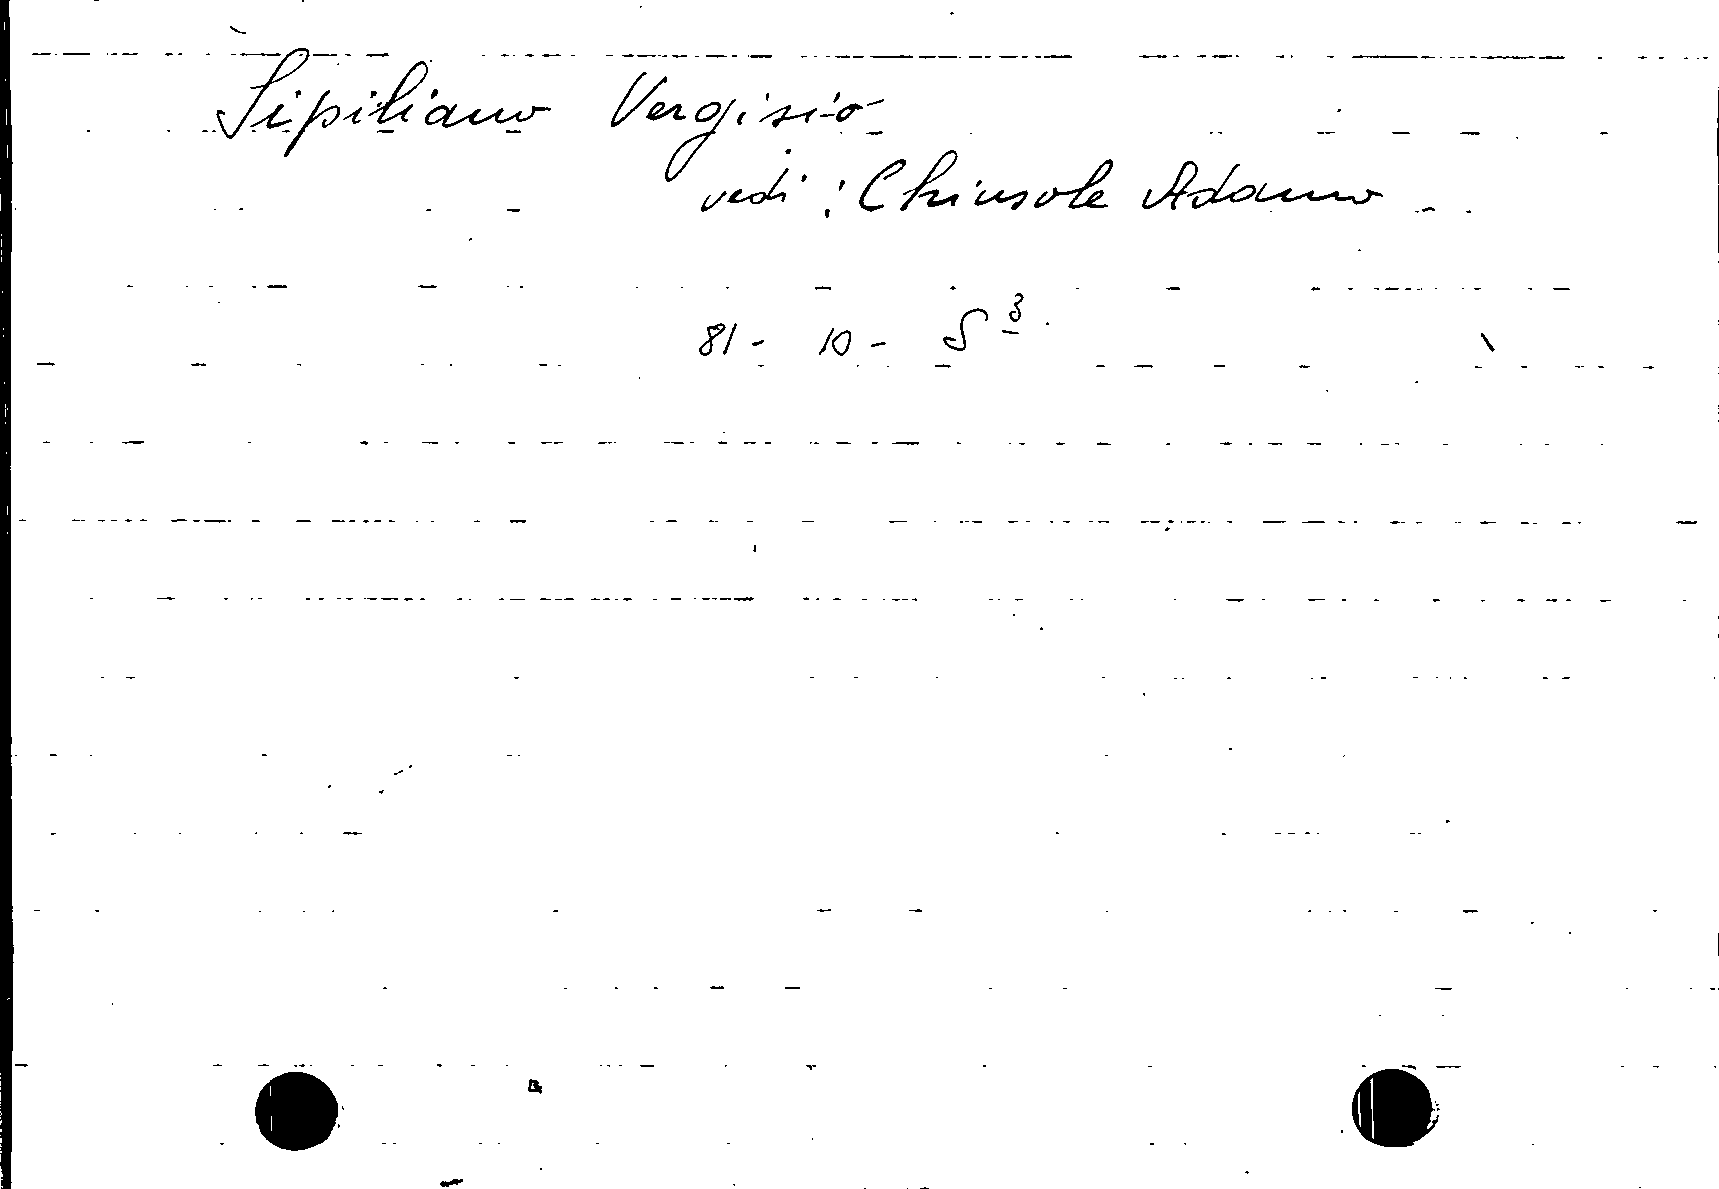 Sipiliano Vergisio
vedi: Chiusole Adamo
81 - 10 - S 3